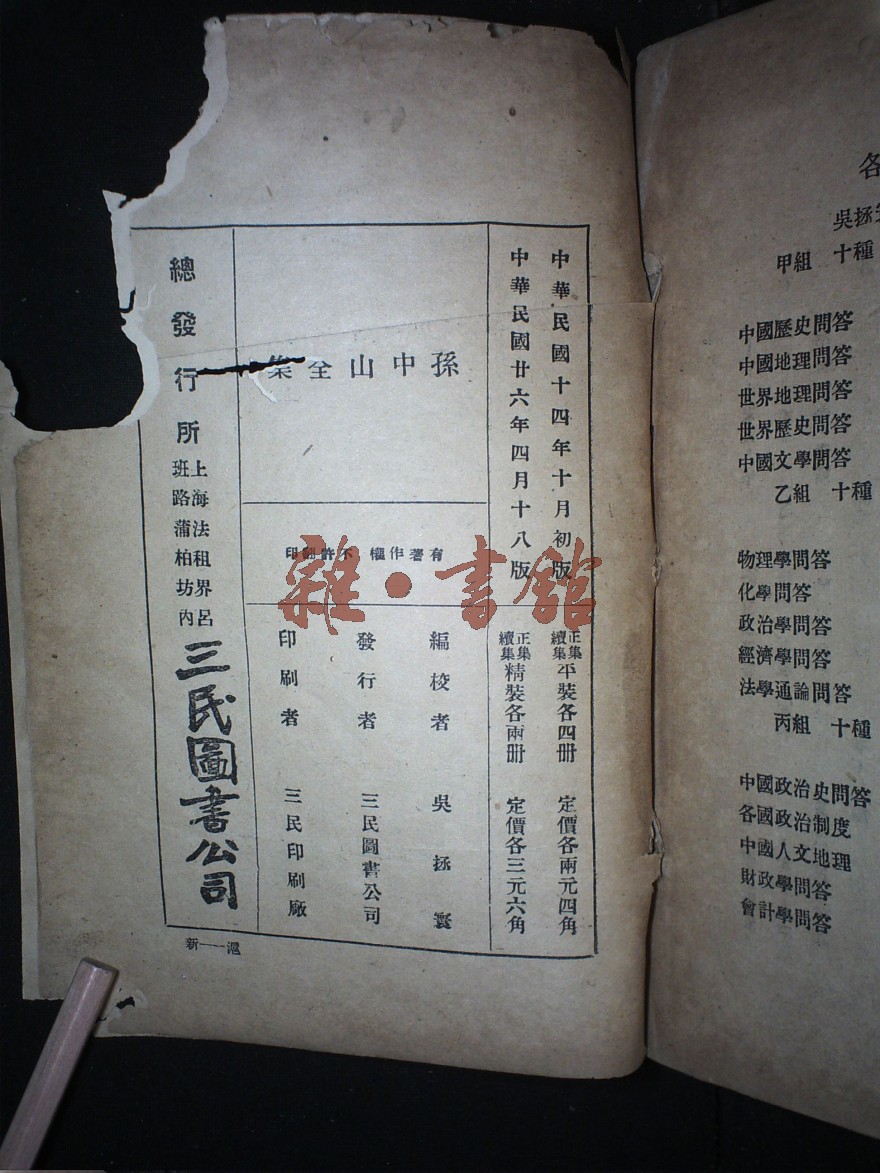 中華民國十四年十月初版
中華民國廿六年四月十八版
正集
續集
平裝各四册 定價各兩元四角
正集
續集
精裝各兩册 定價各三元六角
孫中山全集
有著作權 不許翻印
編校者 吳拯寰
發行者 三民圖書公司
印刷者 三民印刷廠
總發行所
上海法租界呂
班路蒲柏坊內
三民圖書公司
新一一滬
雜·書館
各
吳拯
甲組 十種
中國歷史問答
中國地理問答
世界地理問答
世界歷史問答
中國文學問答
乙組 十種
物理學問答
化學問答
政治學問答
經濟學問答
法學通論問答
丙組 十種
中國政治史問答
各國政治制度
中國人文地理
財政學問答
會計學問答